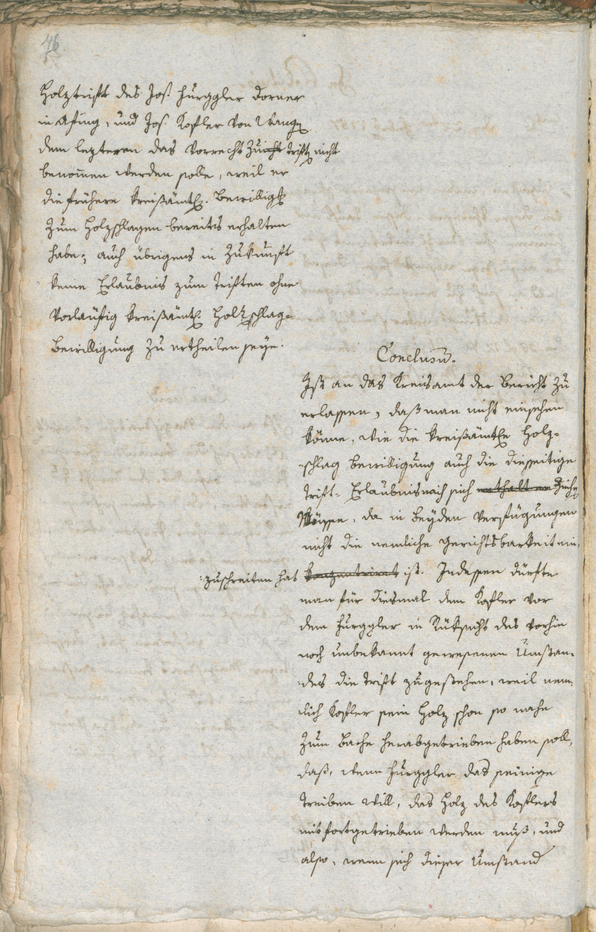 46
Holztrift des Jos. Hurggler Dorner
in Afing, und Jos. Kofler von Wangen
dem lezteren das Vorrecht zur Trift nicht
benom̅en werden solle, weil er
die frühere kreisämtl. Bewilligg
zum Holzschlagen bereits erhalten
habe; auch übrigens in Zukunft
keine Erlaubnis zum Triften ohne
vorläufig kreisämtl. Holzschlag-
Bewilligung zu ertheilen seye.
Conclusū.
Ist an das Kreisamt der Bericht zu
erlassen, daß man nicht einsehen
könne, wie die kreisämtle Holz-
schlag Bewilligung auch die diesseitige
Trift-Erlaubnis nach sich enthalten ziehen
müsse, da in beyden Verfügungen
nicht die nemliche Gerichtsbarkeit ein-
:zuschreiten hat konzentrirt ist. Indessen dürfte
man für diesmal dem Kofler vor
dem Hurggler in Rüksicht des vorhin
noch unbekannt gewesenen Umstan-
des die Trift zugestehen, weil nem-
lich Kofler sein Holz schon so nahe
zum Bache herabgetrieben haben soll,
daß, wenn Hurggler das seinige
treiben will, das Holz des Koflers
mitfortgetrieben werden muß, und
also, wenn sich dieser Umstand